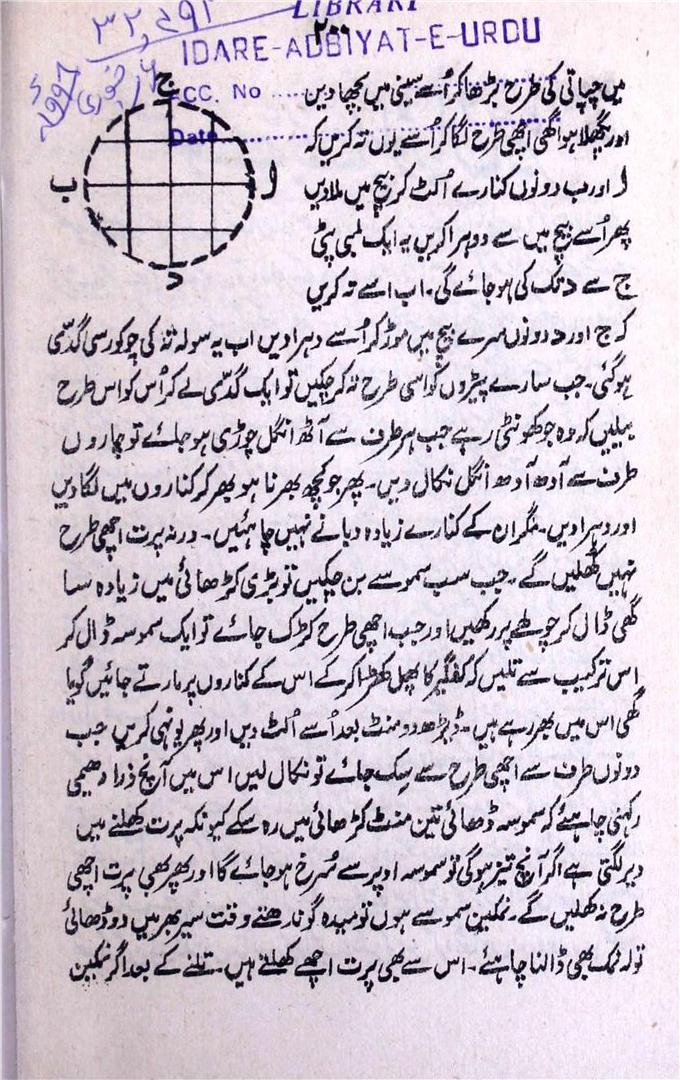 LIBRARY
۲۰۰
IDARE-ADBIYAT-E-URDU
CC. No
Date
ج
ب
ا
د
میں چپاتی کی طرح بڑھا کر اُسے سینی میں بچھا دیں
اور پگھلا ہوا گھی اچھی طرح لگا کر اُسے یوں تہ کریں کہ
ا اور ب دونوں کنارے اُلٹ کر بیچ میں ملا دیں
پھر اُسے بیچ میں سے دوہرا کریں یہ ایک لمبی پٹی
ج سے د تک کی ہو جائے گی۔ اب اسے تہ کریں
کہ ج اور د دونوں سرے بیچ میں موڑ کر اُسے دہرا دیں اب یہ سولہ تہ کی چوکور سی گدّی
ہو گئی۔ جب سارے پیڑوں کو اسی طرح تہ کر چکیں تو ایک گدّی لے کر اُس کو اس طرح
بیلیں کہ وہ چوکھونٹی رہے جب ہر طرف سے آٹھ انگل چوڑی ہو جائے تو چاروں
طرف سے آدھ آدھ انگل نکال دیں۔ پھر جو کچھ بھرنا ہو بھر کر کناروں میں لگا دیں
اور دہرا دیں۔ مگر ان کے کنارے زیادہ دبانے نہیں چاہئیں۔ ورنہ پرت اچھی طرح
نہیں کھلیں گے۔ جب سب سموسے بن چکیں تو بڑی کڑھائی میں زیادہ سا
گھی ڈال کر چولھے پر رکھیں اور جب اچھی طرح کڑک جائے تو ایک سموسہ ڈال کر
اس ترکیب سے تلیں کہ کفگیر کا پھل کھڑا کر کے اس کے کناروں پر مارتے جائیں گویا
گھی اس میں بھر رہے ہیں۔ ڈیڑھ دو منٹ بعد اُسے اُلٹ دیں اور پھر یونہی کریں جب
دونوں طرف سے اچھی طرح سے سِک جائے تو نکال لیں اس میں آنچ ذرا دھیمی
رکھنی چاہئے کہ سموسہ ڈھائی تین منٹ کڑھائی میں رہ سکے کیونکہ پرت کھلنے میں
دیر لگتی ہے اگر آنچ تیز ہو گی تو سموسہ اوپر سے سُرخ ہو جائے گا اور پھر بھی پرت اچھی
طرح نہ کھلیں گے۔ نمکین سموسے ہوں تو میدہ گوندھتے وقت سیر بھر میں دو ڈھائی
تولہ نمک بھی ڈالنا چاہئے۔ اس سے بھی پرت اچھے کھلتے ہیں۔ تلنے کے بعد اگر نمکین